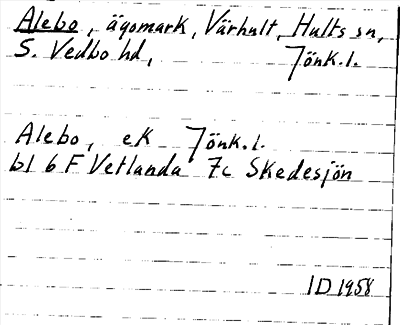 Alebo, ägomark, Värhult, Hults sn,
S. Vedbo hd, Jönk.l.
Alebo, eK Jönk.l.
bl 6 F Vetlanda 7c Skedesjön
ID 1958